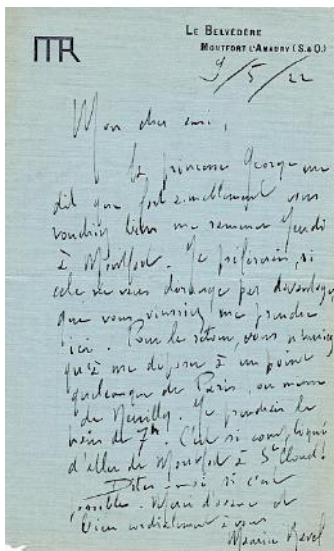 MR
LE BELVÉDÈRE
MONTFORT L'AMAURY (S.&O.)
9/5/22
Mon cher ami,
la princesse George me
dit que fort aimablement vous
voudriez bien me ramener jeudi
à Montfort. Je préférerais, si
cela ne vous dérange pas davantage
que vous veniez me prendre
ici. Pour le retour, vous n'auriez
qu'à me déposer à un point
quelconque de Paris, ou même
de Neuilly. Je prendrais le
train de 7h. C'est si compliqué
d'aller de Montfort à St Cloud!
Dites-moi si c'est
possible. Merci d'avance et
bien cordialement à vous
Maurice Ravel